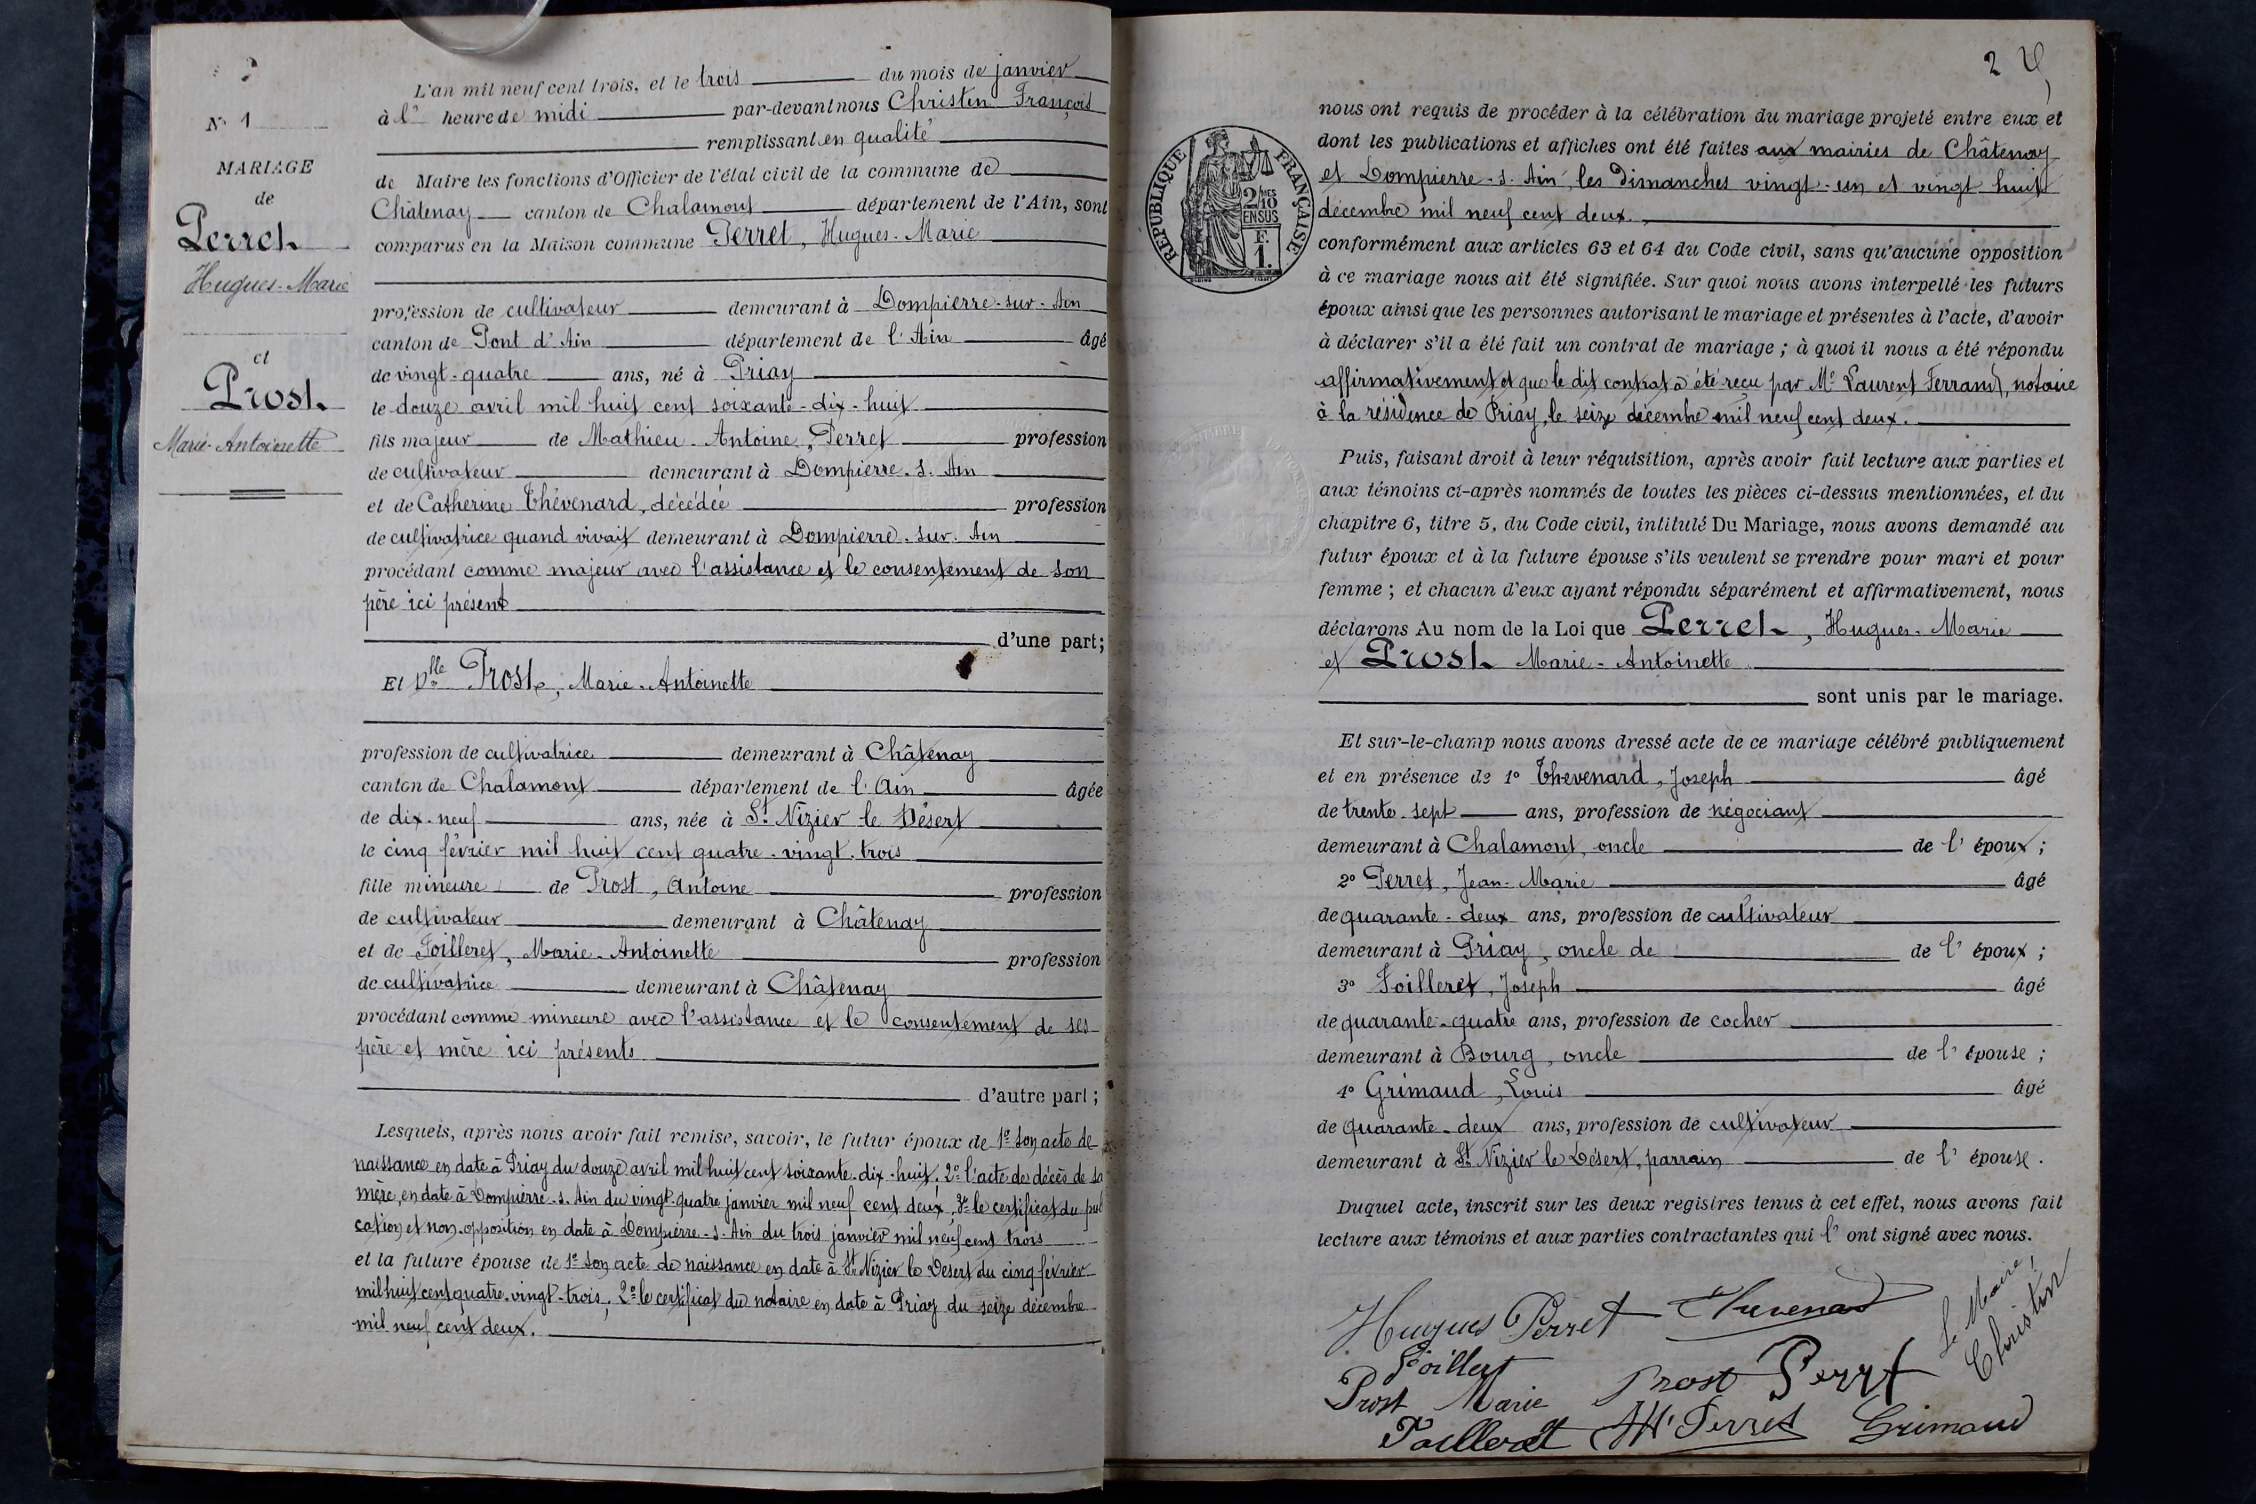 N° 1
MARIAGE
de
Perret
Hugues-Marie
et
Prost
Marie-Antoinette
L'an mil neuf cent trois, et le trois du mois de janvier
à l' heure de midi par-devant nous Christin François
remplissant en qualité
de Maire les fonctions d'Officier de l'état civil de la commune de
Châtenay canton de Chalamont département de l'Ain, sont
comparus en la Maison commune Perret, Hugues-Marie
profession de cultivateur demeurant à Dompierre-sur-Ain
canton de Pont d'Ain département de l'Ain âgé
de vingt-quatre ans, né à Priay
le douze avril mil huit cent soixante-dix-huit
fils majeur de Mathieu-Antoine Perret profession
de cultivateur demeurant à Dompierre-s.-Ain
et de Catherine Thévenard, décédée profession
de cultivatrice quand vivait demeurant à Dompierre-sur-Ain
procédant comme majeur avec l'assistance et le consentement de son
père ici présent
d'une part;
Et Dlle Prost, Marie-Antoinette
profession de cultivatrice demeurant à Châtenay
canton de Chalamont département de l'Ain âgée
de dix-neuf ans, née à St Nizier le Désert
le cinq février mil huit cent quatre-vingt-trois
fille mineure de Prost, Antoine profession
de cultivateur demeurant à Châtenay
et de Foilleret, Marie-Antoinette profession
de cultivatrice demeurant à Châtenay
procédant comme mineure avec l'assistance et le consentement de ses
père et mère ici présents
d'autre part;
Lesquels, après nous avoir fait remise, savoir, le futur époux de 1° son acte de
naissance en date à Priay du douze avril mil huit cent soixante-dix-huit, 2° l'acte de décès de sa
mère, en date à Dompierre-s.-Ain du vingt-quatre janvier mil neuf cent deux, 3° le certificat du publi
cation et non-opposition en date à Dompierre-s.-Ain du trois janvier mil neuf cent trois
et la future épouse de 1° son acte de naissance en date à St Nizier le Désert du cinq février
mil huit cent quatre-vingt-trois, 2° le certificat du notaire en date à Priay du seize décembre
mil neuf cent deux.
2
RÉPUBLIQUE FRANÇAISE
2/10 EN SUS
F. 1.
nous ont requis de procéder à la célébration du mariage projeté entre eux et
dont les publications et affiches ont été faites aux mairies de Châtenay
et Dompierre-s.-Ain, les Dimanches vingt-un et vingt-huit
décembre mil neuf cent deux.
conformément aux articles 63 et 64 du Code civil, sans qu'aucune opposition
à ce mariage nous ait été signifiée. Sur quoi nous avons interpellé les futurs
époux ainsi que les personnes autorisant le mariage et présentes à l'acte, d'avoir
à déclarer s'il a été fait un contrat de mariage; à quoi il nous a été répondu
affirmativement et que le dit contrat a été reçu par Me Laurent Ferrand, notaire
à la résidence de Priay, le seize décembre mil neuf cent deux.
Puis, faisant droit à leur réquisition, après avoir fait lecture aux parties et
aux témoins ci-après nommés de toutes les pièces ci-dessus mentionnées, et du
chapitre 6, titre 5, du Code civil, intitulé Du Mariage, nous avons demandé au
futur époux et à la future épouse s'ils veulent se prendre pour mari et pour
femme; et chacun d'eux ayant répondu séparément et affirmativement, nous
déclarons Au nom de la Loi que Perret, Hugues-Marie
et Prost Marie-Antoinette
sont unis par le mariage.
Et sur-le-champ nous avons dressé acte de ce mariage célébré publiquement
et en présence de 1° Thevenard, Joseph âgé
de trente-sept ans, profession de négociant
demeurant à Chalamont, oncle de l'époux;
2° Perret, Jean-Marie âgé
de quarante-deux ans, profession de cultivateur
demeurant à Priay, oncle de de l'époux;
3° Foilleret, Joseph âgé
de quarante-quatre ans, profession de cocher
demeurant à Bourg, oncle de l'épouse;
4° Grimaud, Louis âgé
de quarante-deux ans, profession de cultivateur
demeurant à St Nizier le Désert, parrain de l'épouse.
Duquel acte, inscrit sur les deux registres tenus à cet effet, nous avons fait
lecture aux témoins et aux parties contractantes qui l' ont signé avec nous.
Hugues Perret Thevenard
Le Maire,
Christin
Foilleret
Prost Marie Prost Perret
Foilleret Perret Grimaud